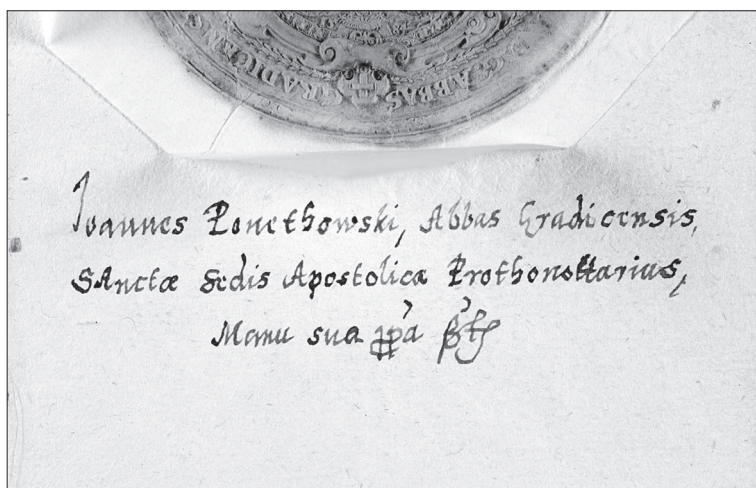 ABBAS GRADICENS
Ioannes Ponethowski, Abbas Gradicensis,
SAnctæ Sedis Apostolicæ Prothonottarius,
Manu sua